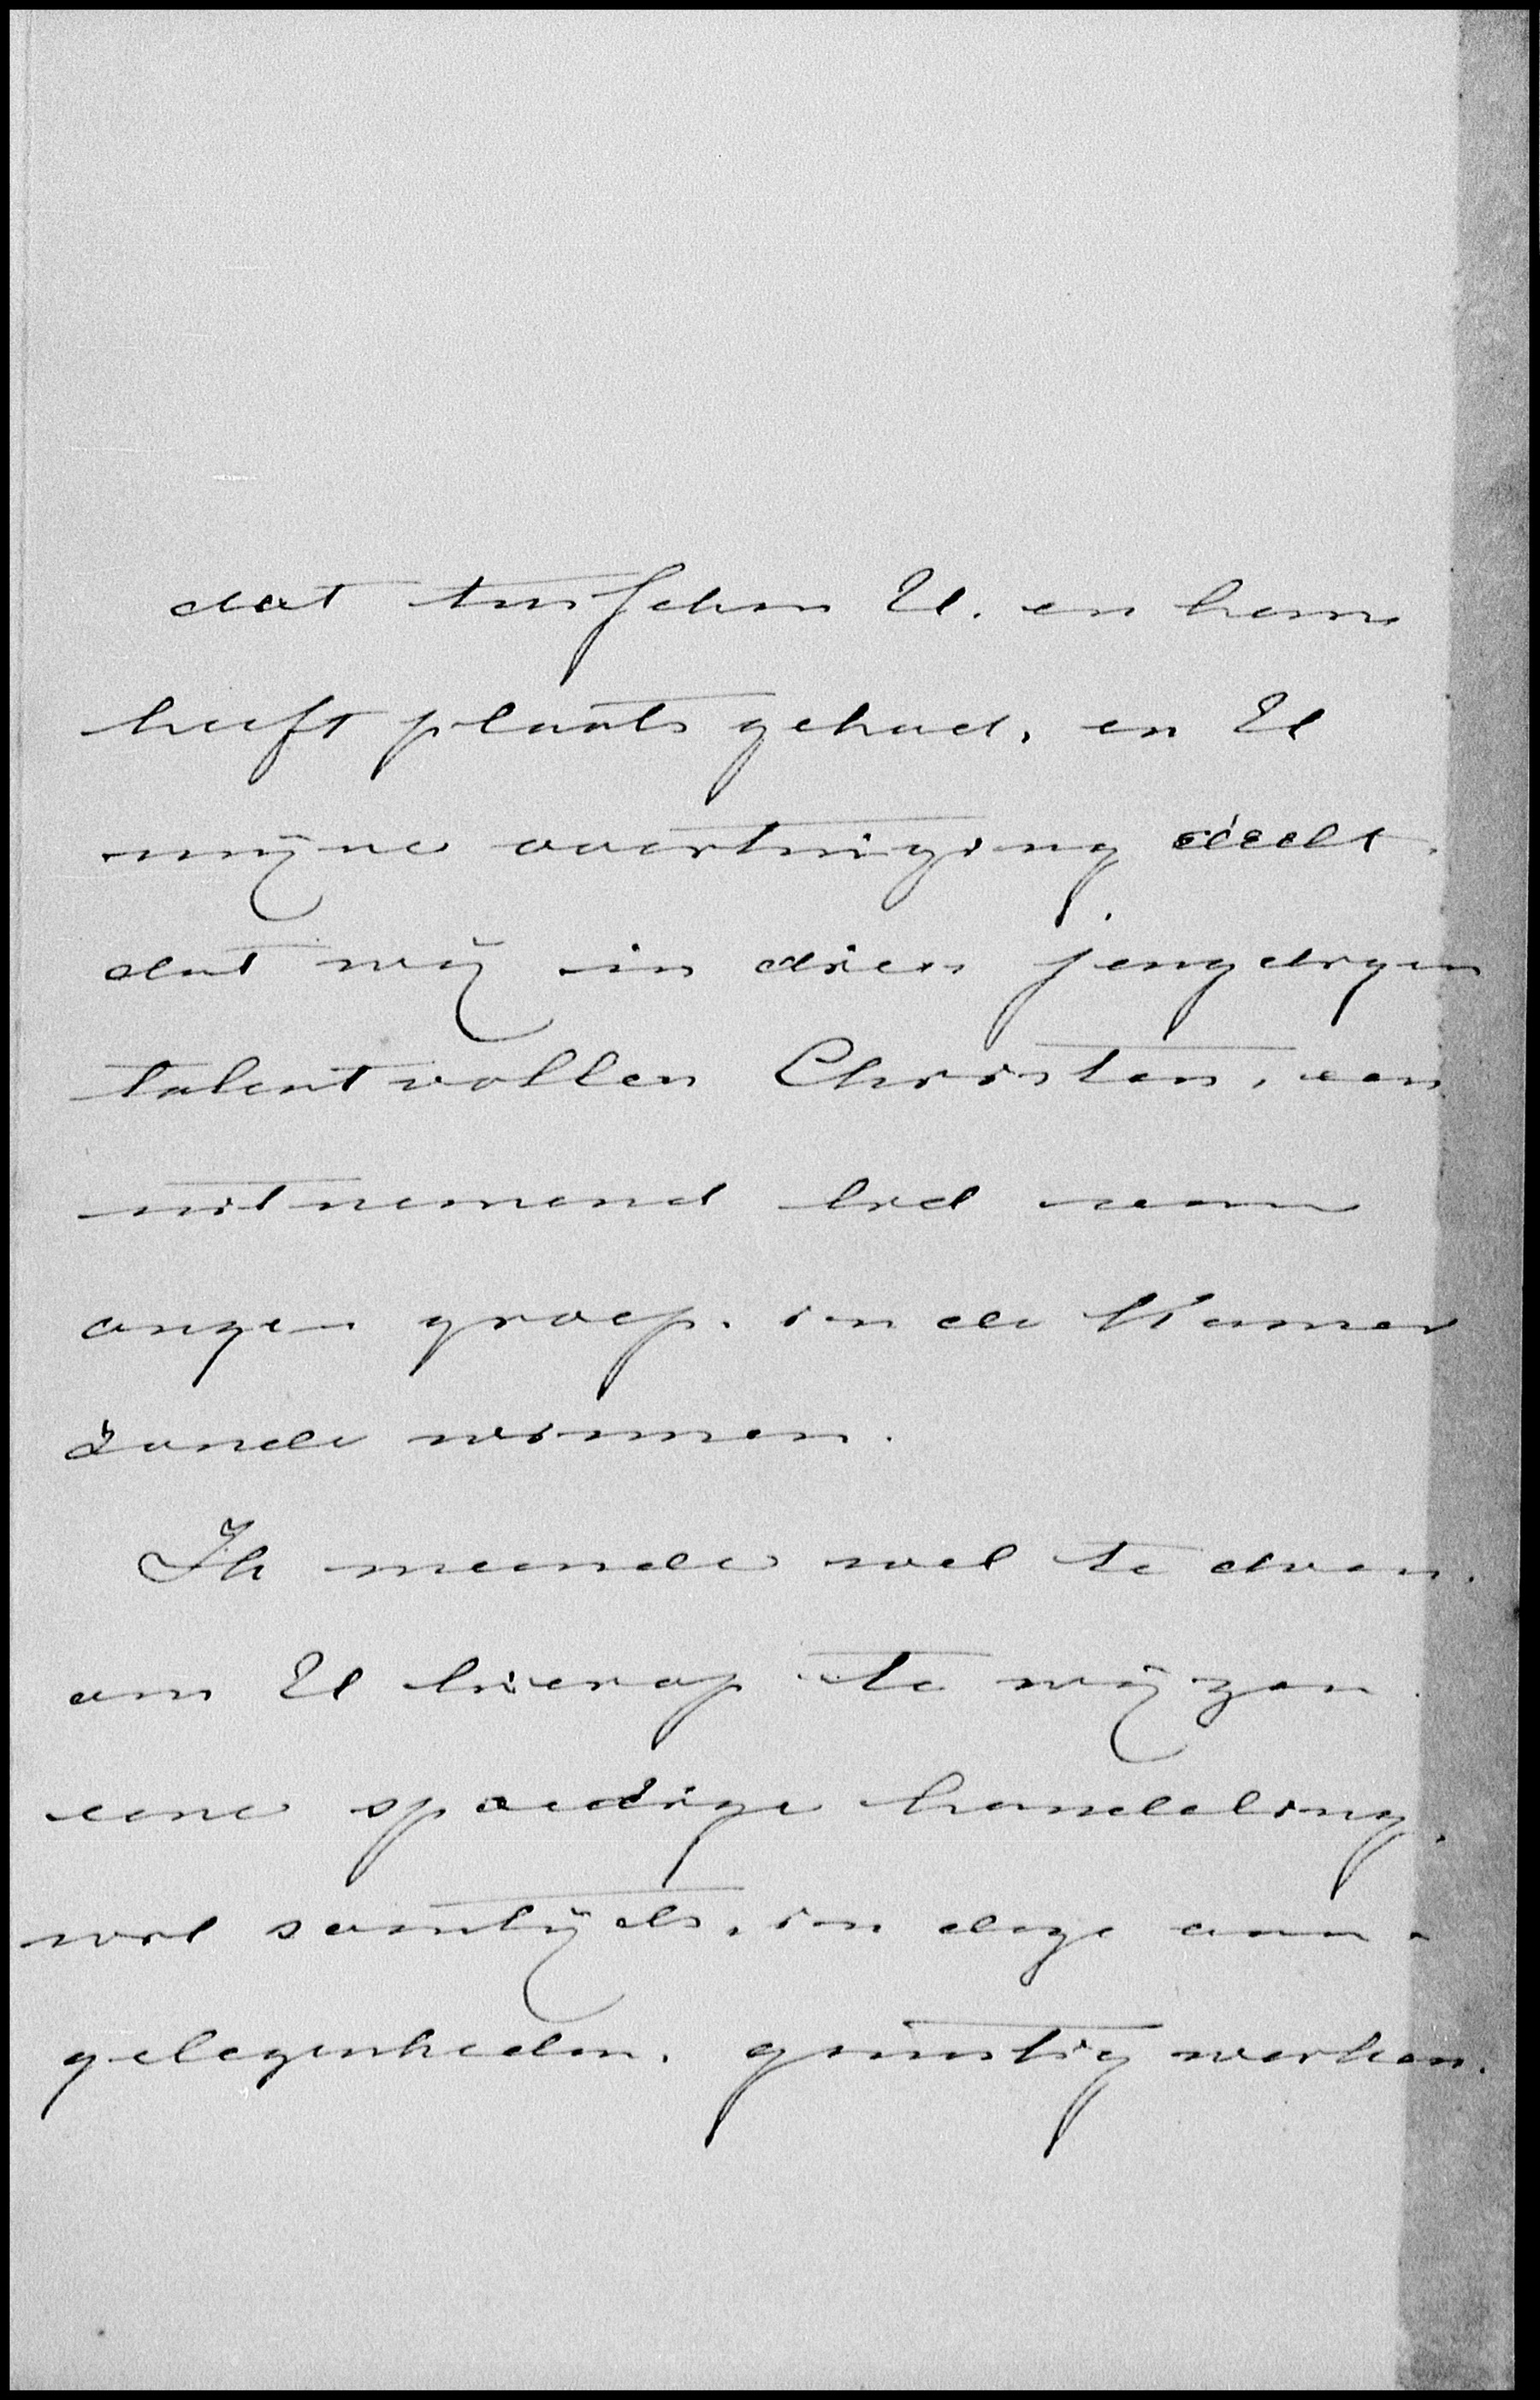 dat tusschen U. en hem
heeft plaats gehad, en U
mijne overtuiging deelt.
dat wij in dien jeugdigen
talentvollen Christen, een
uitnemend lid van
onzen groep. in de Kamer
zoude winnen.
Ik meende wel te doen.
om U hierop te wijzen.
eene spoedige handeling,
wil somtijds, in deze aan-
gelegenheden, gunstig werken.